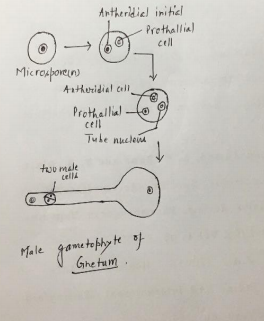 Antheridial initial
Prothallial
cell
Microspore(n)
Antheridial cell
Prothallial
cell
Tube nucleus
two male
cells
Male gametophyte of
Gnetum.